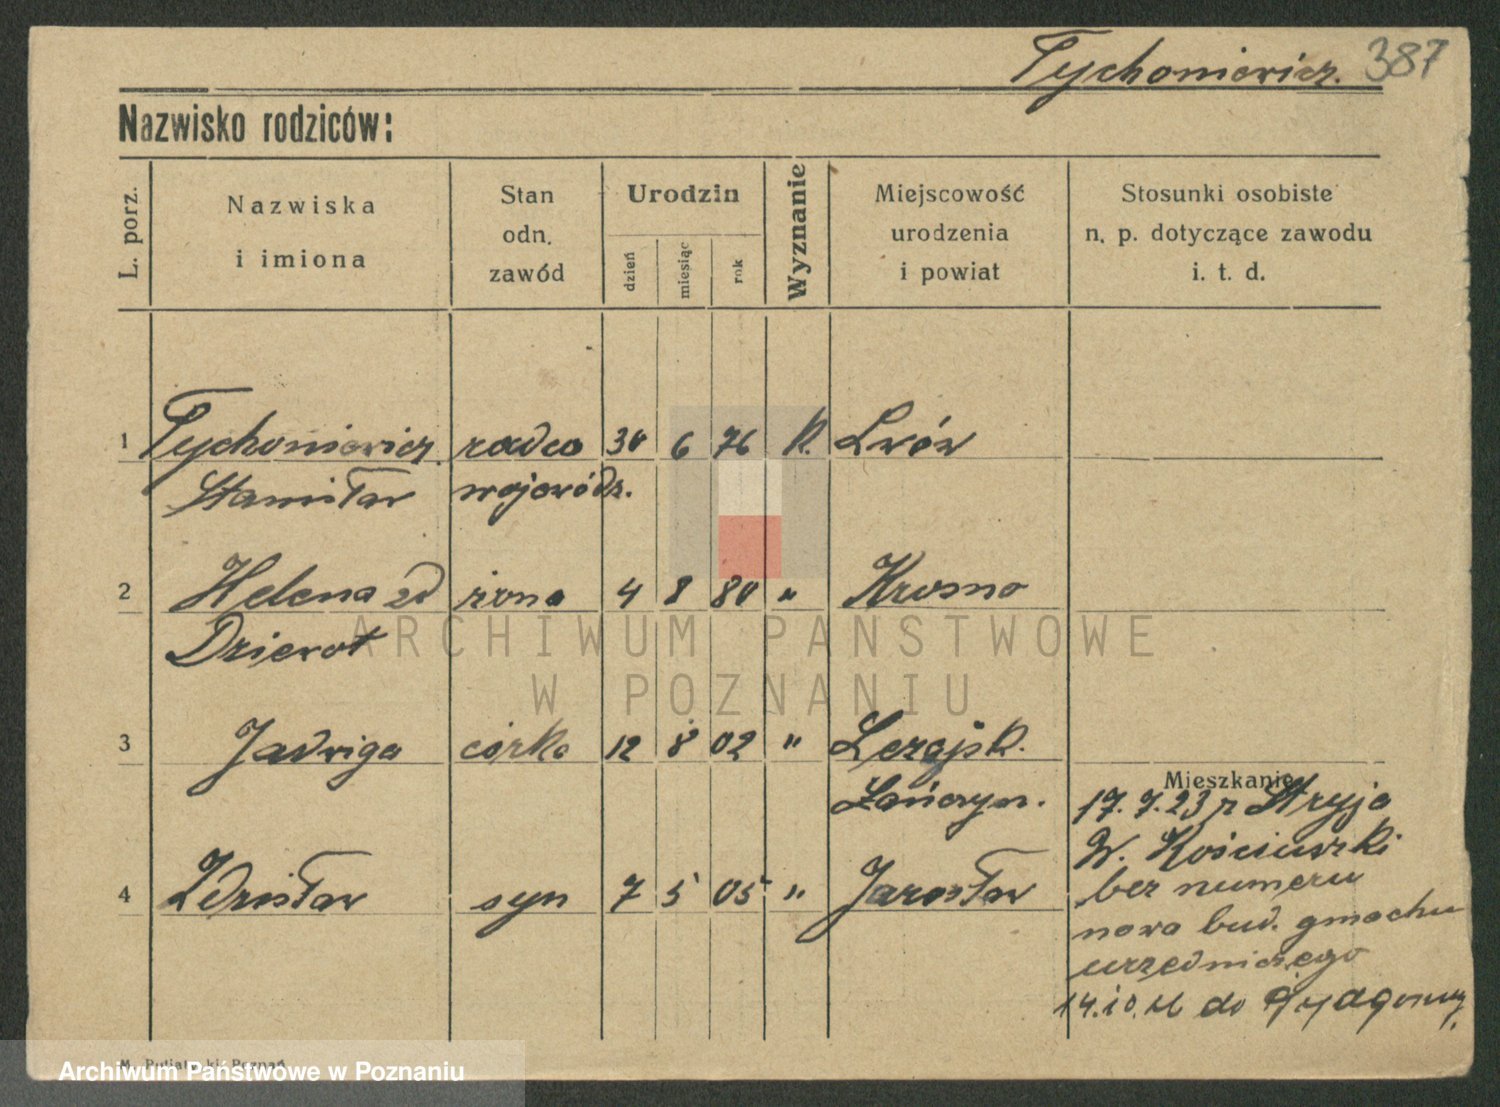 Tychoniewicz. 387
Nazwisko rodziców:
L. porz. Nazwiska i imiona Stan odn. zawód Urodzin dzień miesiąc rok Wyznanie Miejscowość urodzenia i powiat Stosunki osobiste n. p. dotyczące zawodu i. t. d.
1 Tychoniewicz radca 30 6 76 k. Lwów
Stanisław wojewódz.
2 Helena zd żona 4 8 80 " Krosno
3 Jadwiga córka 12 8 02 " Leżajsk.
Mieszkanie
17.7.23 z Stryja
4 Zdzisław syn 7 5 05 " Jarosław
W. Kościuszki
bez numeru
nowo bud. gmachu
urzędniczego
do Bydgoszczy
ARCHIWUM PAŃSTWOWE
W POZNANIU
Archiwum Państwowe w Poznaniu